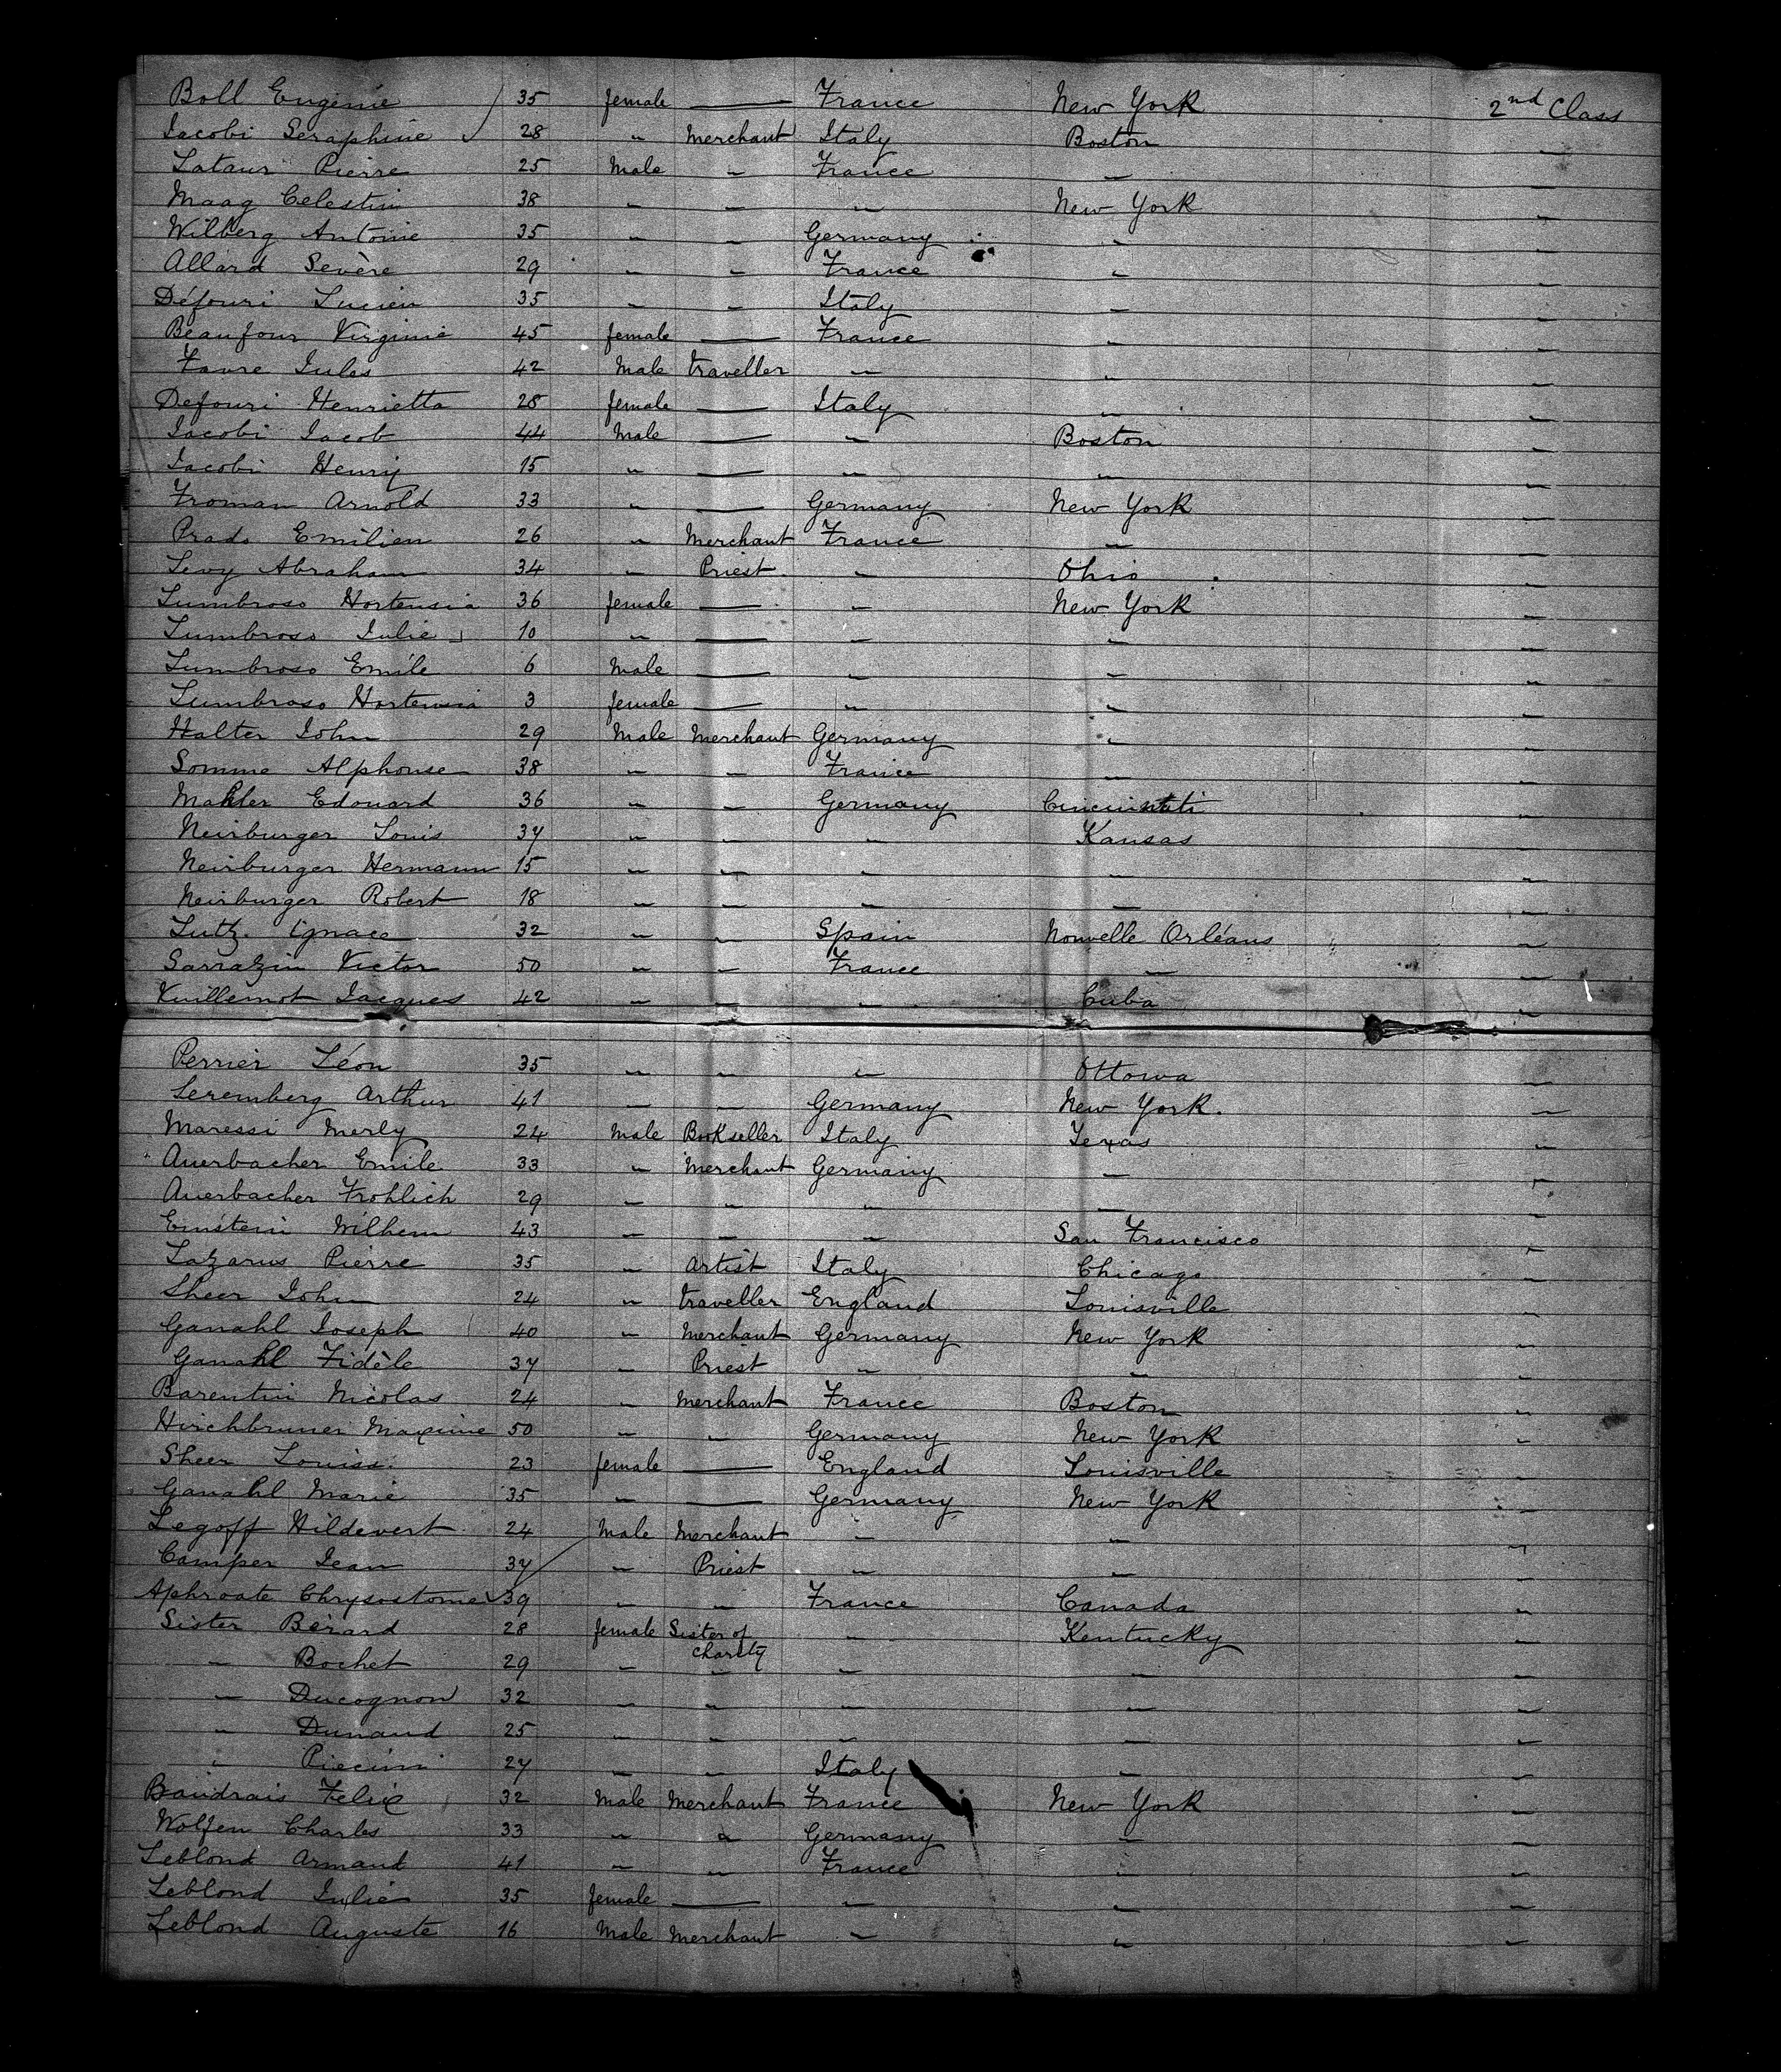 Boll Eugénie 35 female — France New York 2nd Class
Iacobi Seraphine 28 " Merchant Italy Boston "
Lataur Pierre 25 Male " France " "
Maag Celestin 38 " " " New York "
Wilberg Antoine 35 " " Germany " "
Allard Sevère 29 " " France " "
Défouri Lucien 35 " " Italy " "
Beaufour Virginie 45 female — France " "
Favre Jules 42 Male traveller " " "
Defouri Henrietta 28 female — Italy " "
Iacobi Iacob 44 Male — " Boston "
Iacobi Henry 15 " — " " "
Froman Arnold 33 " — Germany New York "
Prado Emilien 26 " Merchant France " "
Levy Abraham 34 " Priest " Ohio "
Lumbroso Hortensia 36 female — " New York "
Lumbroso Iulie 10 " — " " "
Lumbroso Emile 6 Male — " " "
Lumbroso Hortensia 3 female — " " "
Halter Iohn 29 Male Merchant Germany " "
Somme Alphonse 38 " " France " "
Mahler Edouard 36 " " Germany Cincinnati "
Neirburger Louis 37 " " " Kansas "
Neirburger Hermann 15 " " " " "
Neirburger Robert 18 " " " " "
Lutz Ignace 32 " " Spain Nouvelle Orléans "
Sarrazin Victor 50 " " France " "
Vuillemot Iacques 42 " " " Cuba "
Perrier Léon 35 " " " Ottowa "
Leremberg Arthur 41 " " Germany New York. "
Maressi Merly 24 Male Bookseller Italy Texas "
Auerbacher Emile 33 " Merchant Germany " "
Auerbacher Frohlich 29 " " " " "
Einstein Wilhem 43 " " " San Francisco "
Lazarus Pierre 35 " Artist Italy Chicago "
Sheer Iohn 24 " traveller England Louisville "
Ganahl Ioseph 40 " Merchant Germany New York "
Ganahl Fidèle 37 " Priest " " "
Barentini Nicolas 24 " Merchant France Boston "
Hirchbruner Maxime 50 " " Germany New York "
Sheer Louise 23 female — England Louisville "
Ganahl Marie 35 " — Germany New York "
Legoff Hildevert 24 Male Merchant " " "
Camper Iean 37 " Priest " " "
Aphroate Chrysostome 39 " " France Canada "
Sister Bérard 28 female Sister of charity " Kentucky "
" Bochet 29 " " " " "
" Ducognon 32 " " " " "
" Dunand 25 " " " " "
" Piecini 27 " " Italy " "
Baudrais Felix 32 Male Merchant France New York "
Wolfen Charles 33 " " Germany " "
Leblond Armand 41 " " France " "
Leblond Iulie 35 female — " " "
Leblond Auguste 16 Male Merchant " " "